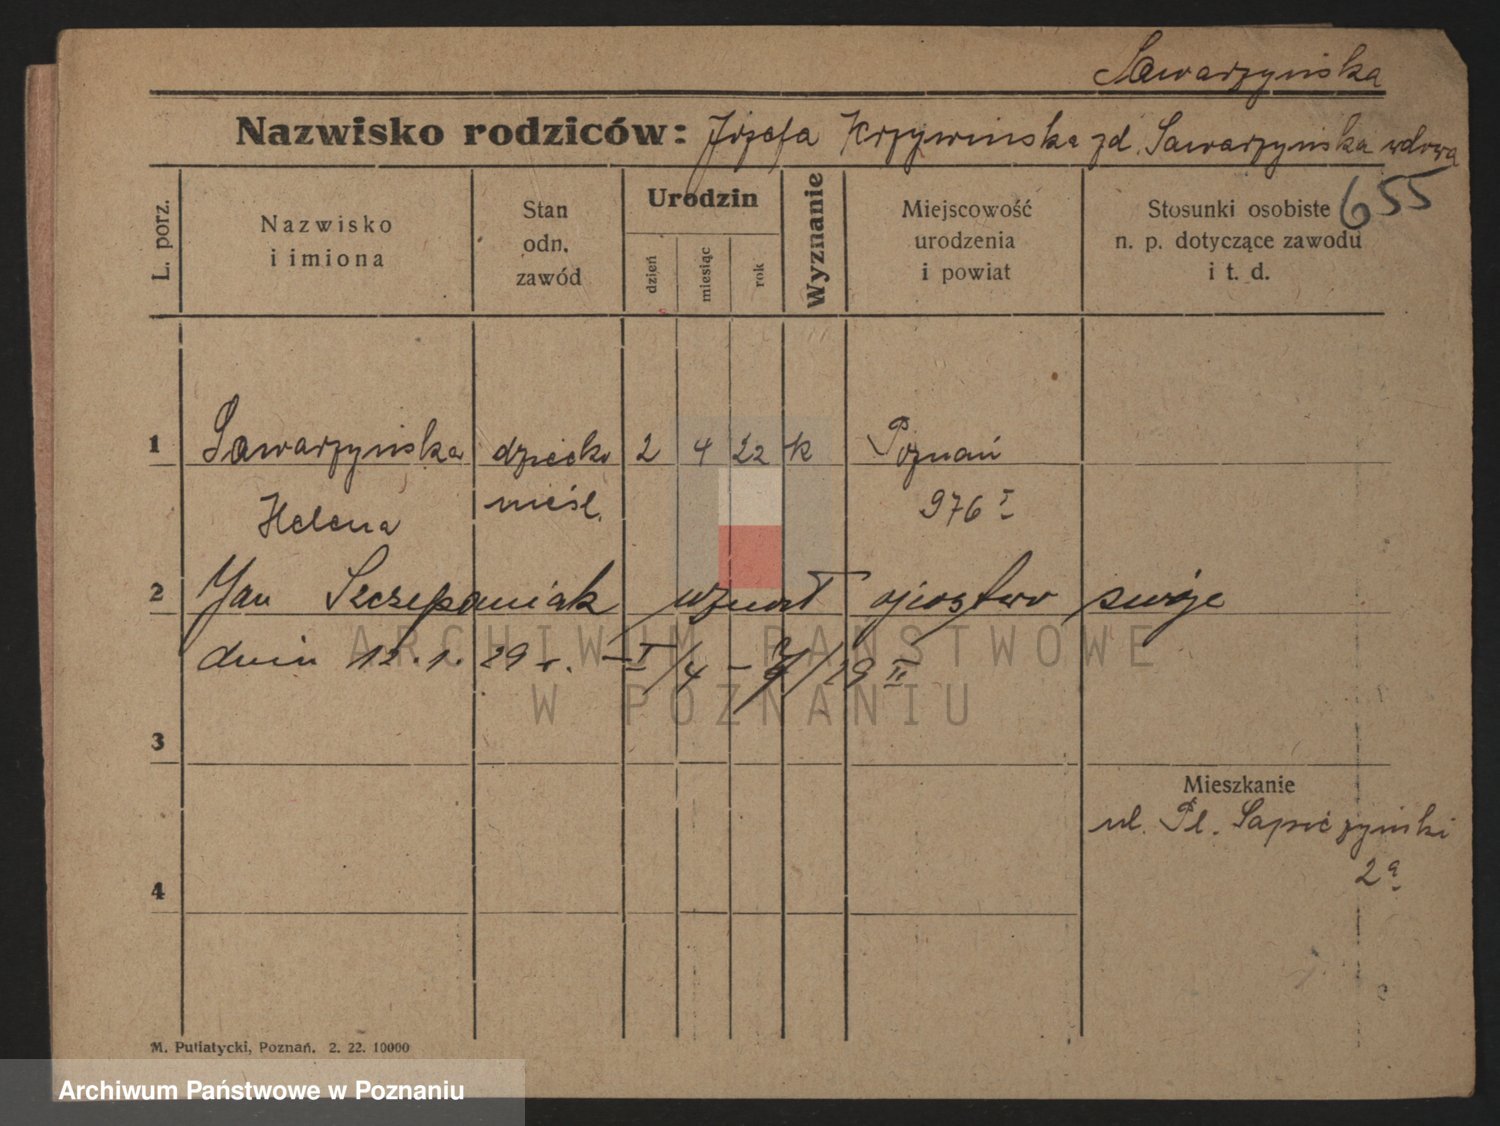 Sawarzyńska
Nazwisko rodziców: Józefa Krzywińska zd. Sawarzyńska wdowa
655
L. porz.
Nazwisko
i imiona
Stan
odn.
zawód
Urodzin
dzień
miesiąc
rok
Wyznanie
Miejscowość
urodzenia
i powiat
Stosunki osobiste
n. p. dotyczące zawodu
i t. d.
1 Sawarzyńska dziecko 2 4 22 k Poznań
Helena nieśl. 976 I
2 Jan Szczepaniak uznał ojcostwo swoje
dnia 12.1.29 r.
ARCHIWUM PAŃSTWOWE
W POZNANIU
3
Mieszkanie
ul. Pl. Sapieżyński
2a
4
M. Putiatycki, Poznań. 2. 22. 10000
Archiwum Państwowe w Poznaniu